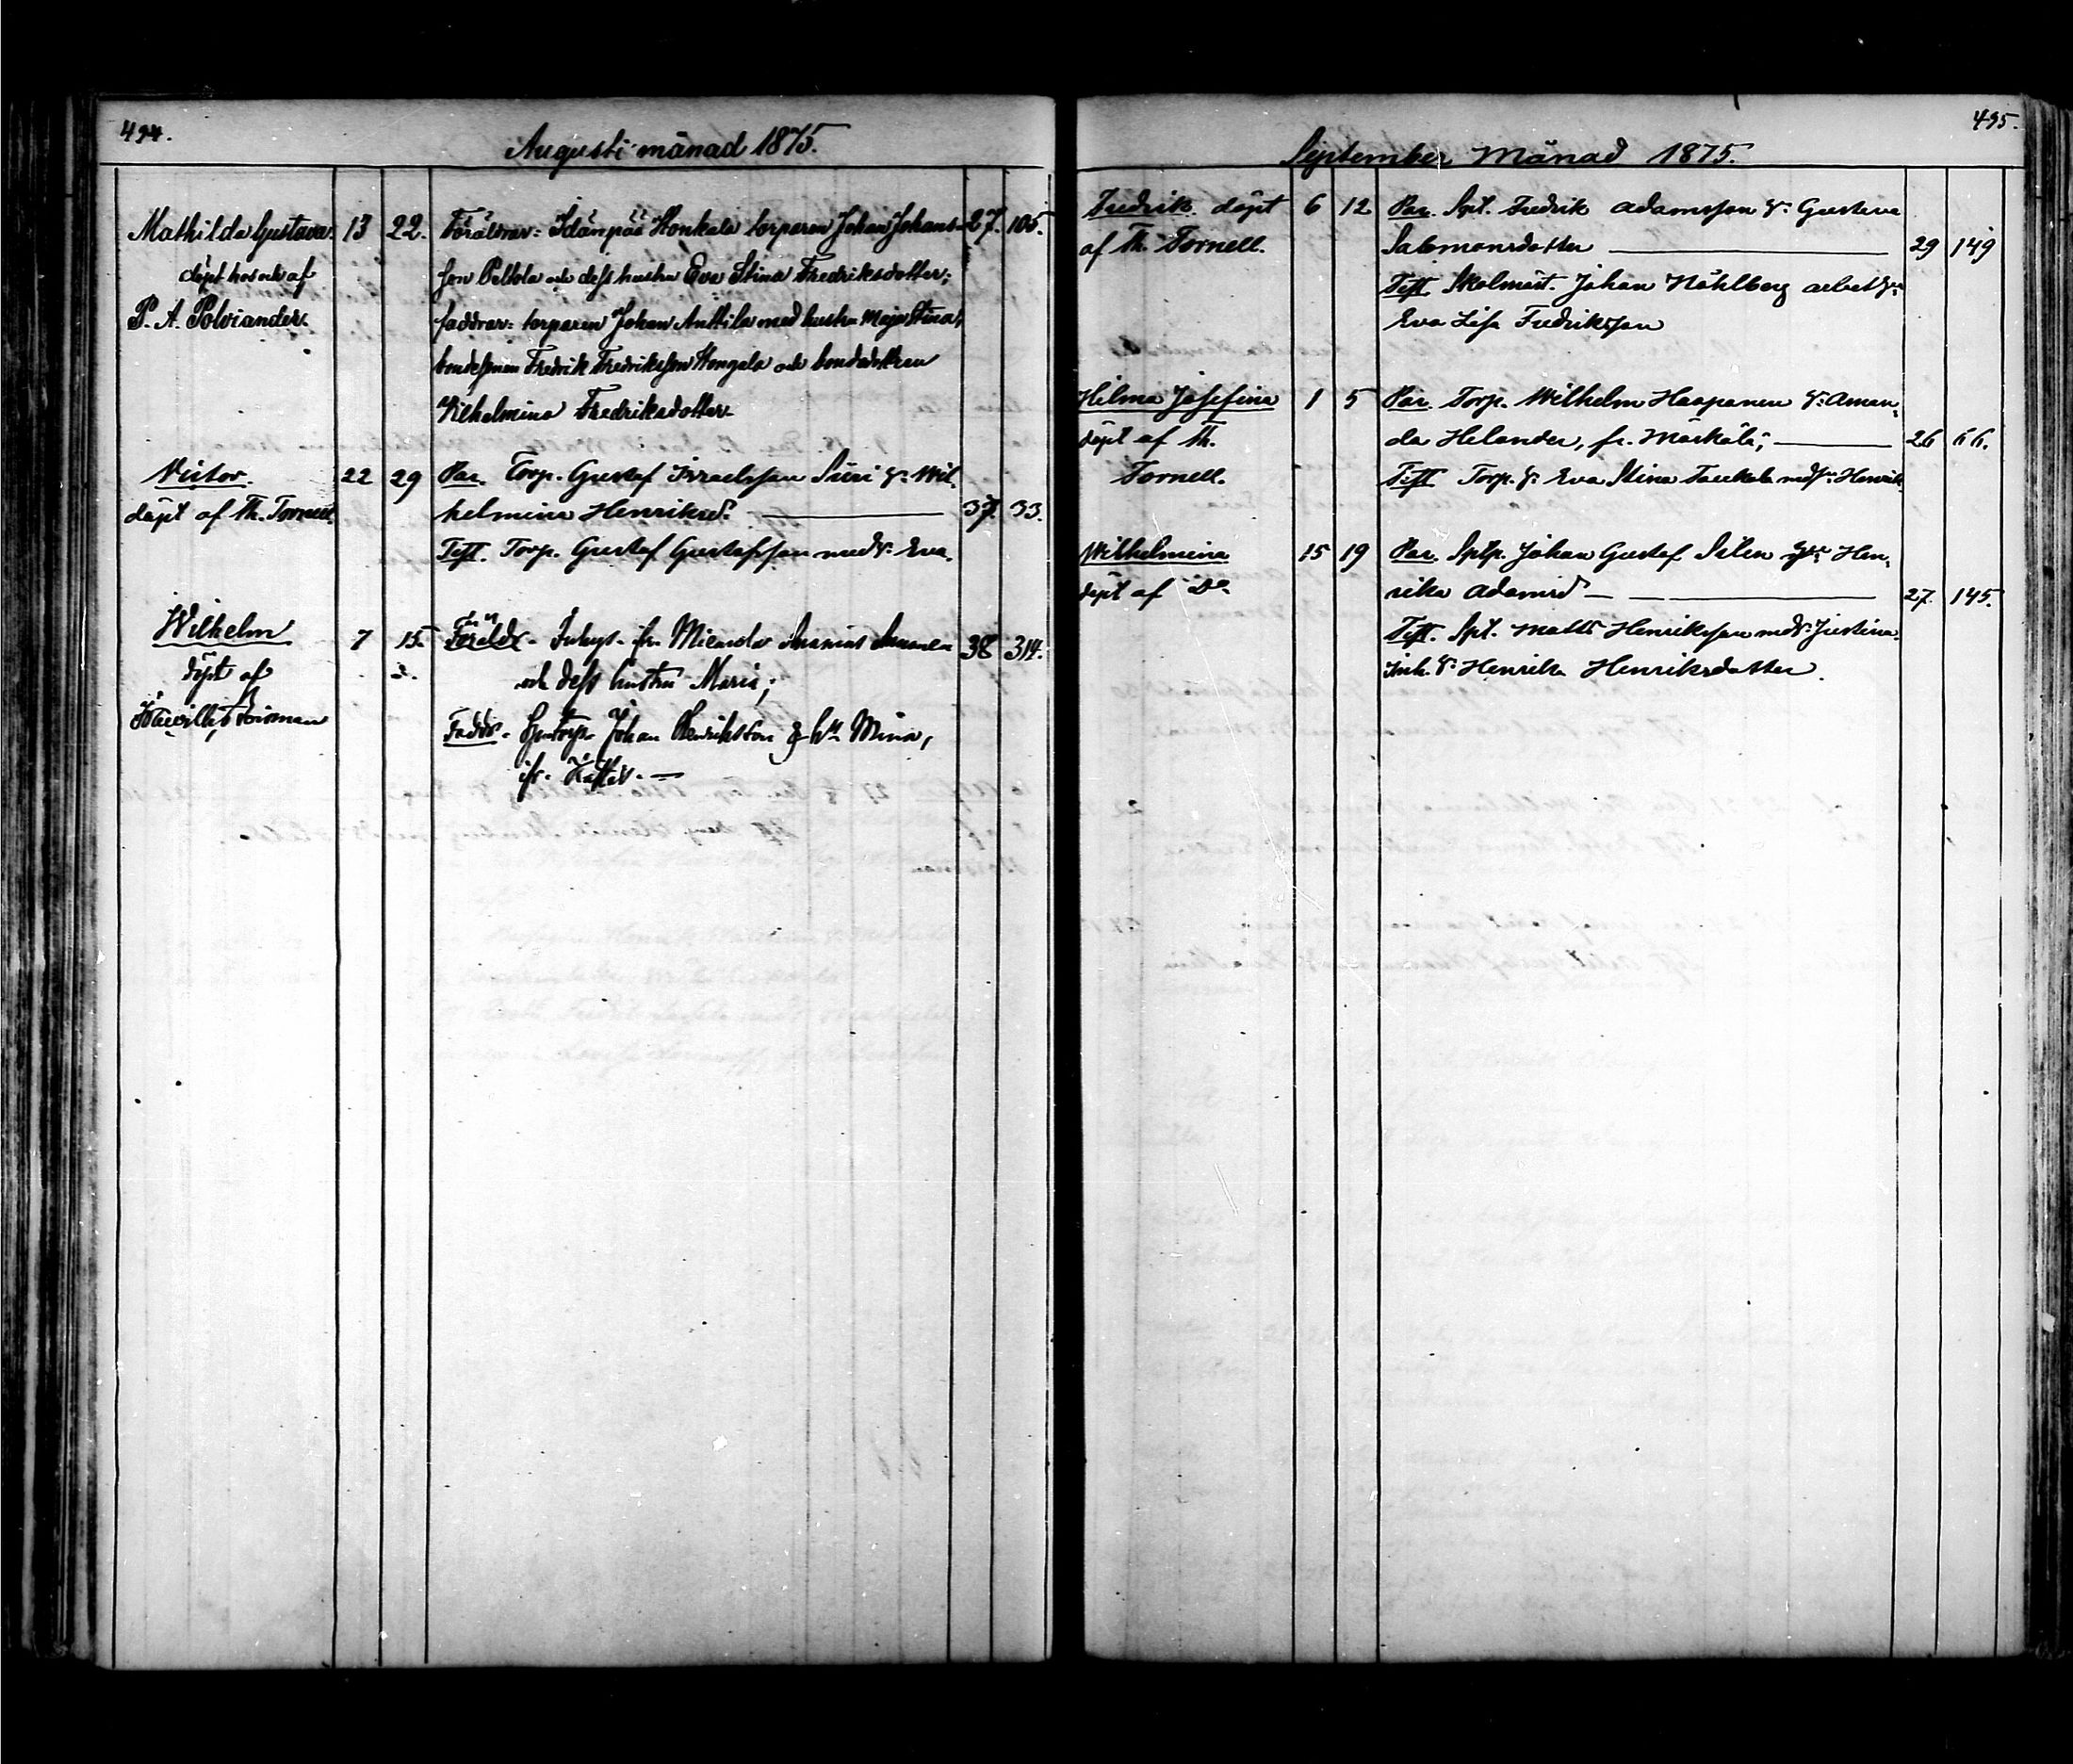 494.
Augusti månad 1875.
Mathilda Gustava. 13 22. Föräldrar: Idänpää Honkala torparen Johan Johans- 27. 105.
döpt hos och af son Peltola och dess hustru Eva Stina Fredriksdotter;
P. A. Polviander. faddrar: torparen Johan Anttila med hustru Maja Stina,
bondesonen Fredrik Fredriksson Hongala och bondedottren
Vilhelmina Fredriksdotter
Victor. 22 29 Par. Torp. Gustaf Israelsson Suri & Wil-
döpt af Th. Tornell. helmina Henriksd. 37. 33.
Test. Torp. Gustaf Gustafsson med & Eva.
Wilhelm 7 15. Föräldr. Inhys. fr. 38 314.
döpt af och dess hustru Maria;
Faddr. Johan Henriksson & Mina,
fr.
495.
September Månad 1875.
Fredrik döpt 6 12 Par. Spt. Fredrik Adamsson & Gustava
af Th. Tornell. Salomonsdotter 29 149
Test. Skolmäst. Johan Nählberg
Eva Lisa Fredriksson
Hilma Josefina 1 5 Par. Torp. Wilhelm Haapanen & Aman-
döpt af Th. da Helander, fr. 26 66.
Tornell. Test Torp. & Eva Stina med Henrik
Wilhelmina 15 19 Par. Sptp. Johan Gustaf Silen Hen-
döpt af Do. rika Adamsd 27. 145.
Test. Spt. Matts Henriksson med & Justina
Inh. & Henrika Henriksdotter.